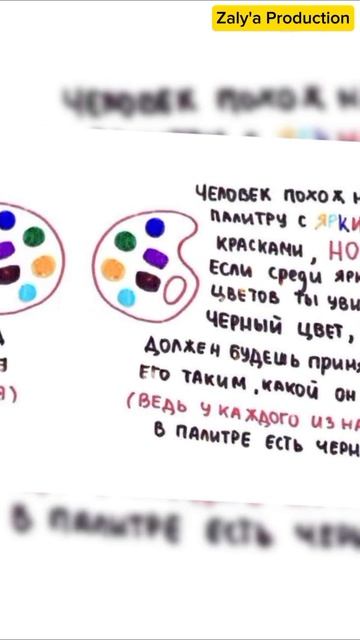 Zaly'a Production
ЧЕЛОВЕК ПОХОЖ Н
ПАЛИТРУ С ЯРКИ
КРАСКАМИ, НО
ЕСЛИ СРЕДИ ЯРК
ЦВЕТОВ ТЫ УВИ
ЧЕРНЫЙ ЦВЕТ,
ДОЛЖЕН БУДЕШЬ ПРИН
ЕГО ТАКИМ, КАКОЙ ОН
(ВЕДЬ У КАЖДОГО ИЗ НА
В ПАЛИТРЕ ЕСТЬ ЧЕРН